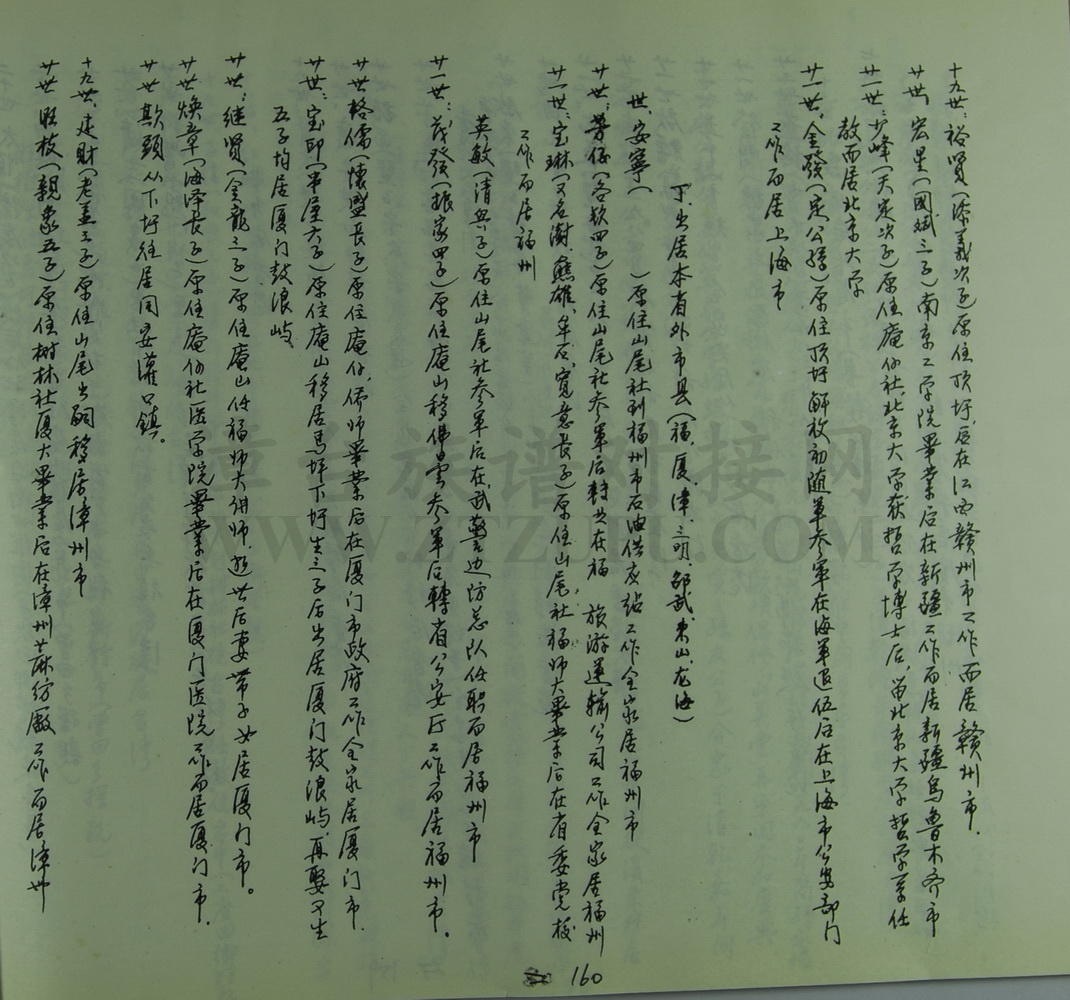 十九世:裕贤(添义次子)原住顶圩,后在江西赣州市工作而居赣州市.
廿世,宏星(国斌三子)南京工学院毕业后在新疆工作而居新疆乌鲁木齐市
廿一世:少峰(天定次子)原住庵仔社,北京大学获哲学博士后,留北京大学哲学系任
教而居北京大学
廿一世,金發(定公孫)原住顶圩解放初随军参军在海军退伍后在上海市公安部门
工作而居上海市
丁、出居本省外市县(福、厦、漳、三明、邵武、东山、龙海)
世、安宁( )原住山尾社到福州市石油供应站工作全家居福州市
廿世:芳伍(各钦四子)原住山尾社参军后转业在福 旅游運輸公司工作全家居福州
廿一世:宝琳(又名澍、熊雄、牟石,寬意長子)原住山尾社福师大畢業后在省委党校
工作而居福州
英敏(清典子)原住山尾社参军后在武警边防总队任职而居福州市
廿一世:茂發(振家四子)原住庵山移佛曇参军后轉省公安厅工作而居福州市。
廿世格儒(懷盟長子)原住庵仔,侨师畢業后在厦门市政府工作全家居厦门市
廿世:宝印(串屋六子)原住庵山移居马坪下圩生三子后出居厦门鼓浪屿,再娶又生
五子均居厦门鼓浪屿
廿世:继贤(金龍三子)原住庵山任福师大讲师,逝世后妻带子女居厦门市。
廿世焕章(海泽長子)原住庵仔社医学院畢業后在厦门医院工作而居厦门市.
廿世欺頭从下圩往居同安灌口鎮。
十九世、建財(老盖三子)原住山尾出嗣移居漳州市
廿世照枝(親象五子)原住树林社厦大畢業后在漳州蔴纺廠工作而居漳州
160
章氏族谱对接网
WWW.ZTZUPU.COM